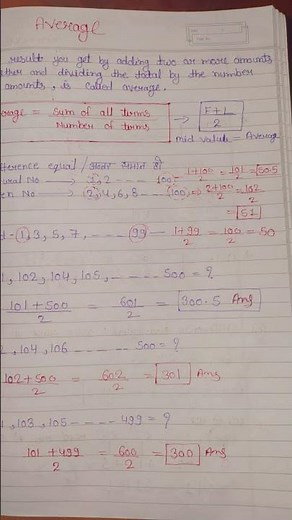 Average
result you get by adding two or more amounts
ther and dividing the total by the number
amounts. is called average.
rage = Sum of all terms / Number of terms → F+L / 2
mid value = Average
fference equal / अन्तर समान हो
ural No → 1, 2 ---- 100 = 1+100 / 2 = 101 / 2 = 50.5
en No → 2, 4, 6, 8 --- 100 => 2+100 / 2 = 102 / 2
= 51
d - 1, 3, 5, 7, ---- 99 — 1+99 / 2 = 100 / 2 = 50
1, 102, 104, 105, ------ 500 = ?
101 + 500 / 2 = 601 / 2 = 300.5 Ans
2, 104, 106 ------- 500 = ?
102 + 500 / 2 = 602 / 2 = 301 Ans
1, 103, 105 ----- 499 = ?
101 + 499 / 2 = 600 / 2 = 300 Ans